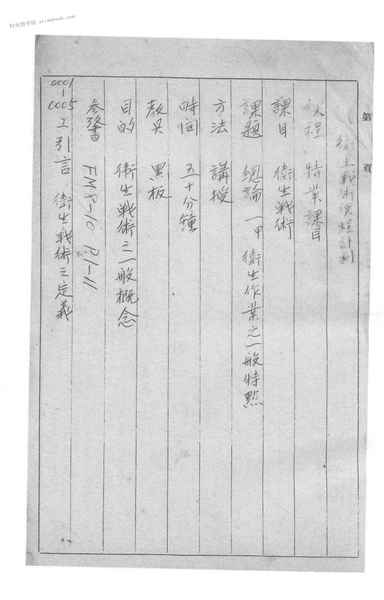 第 頁
衛生戰術演習計劃
課程 特業課目
課目 衛生戰術
課題 總論 一甲 衛生作業之一般特點
方法 講授
時间 五十分鐘
教具 黑板
目的 衛生戰術之一般概念
参攷書 FM8-10 P.1-11
0001-0005 工引言 衛生戰術之定義